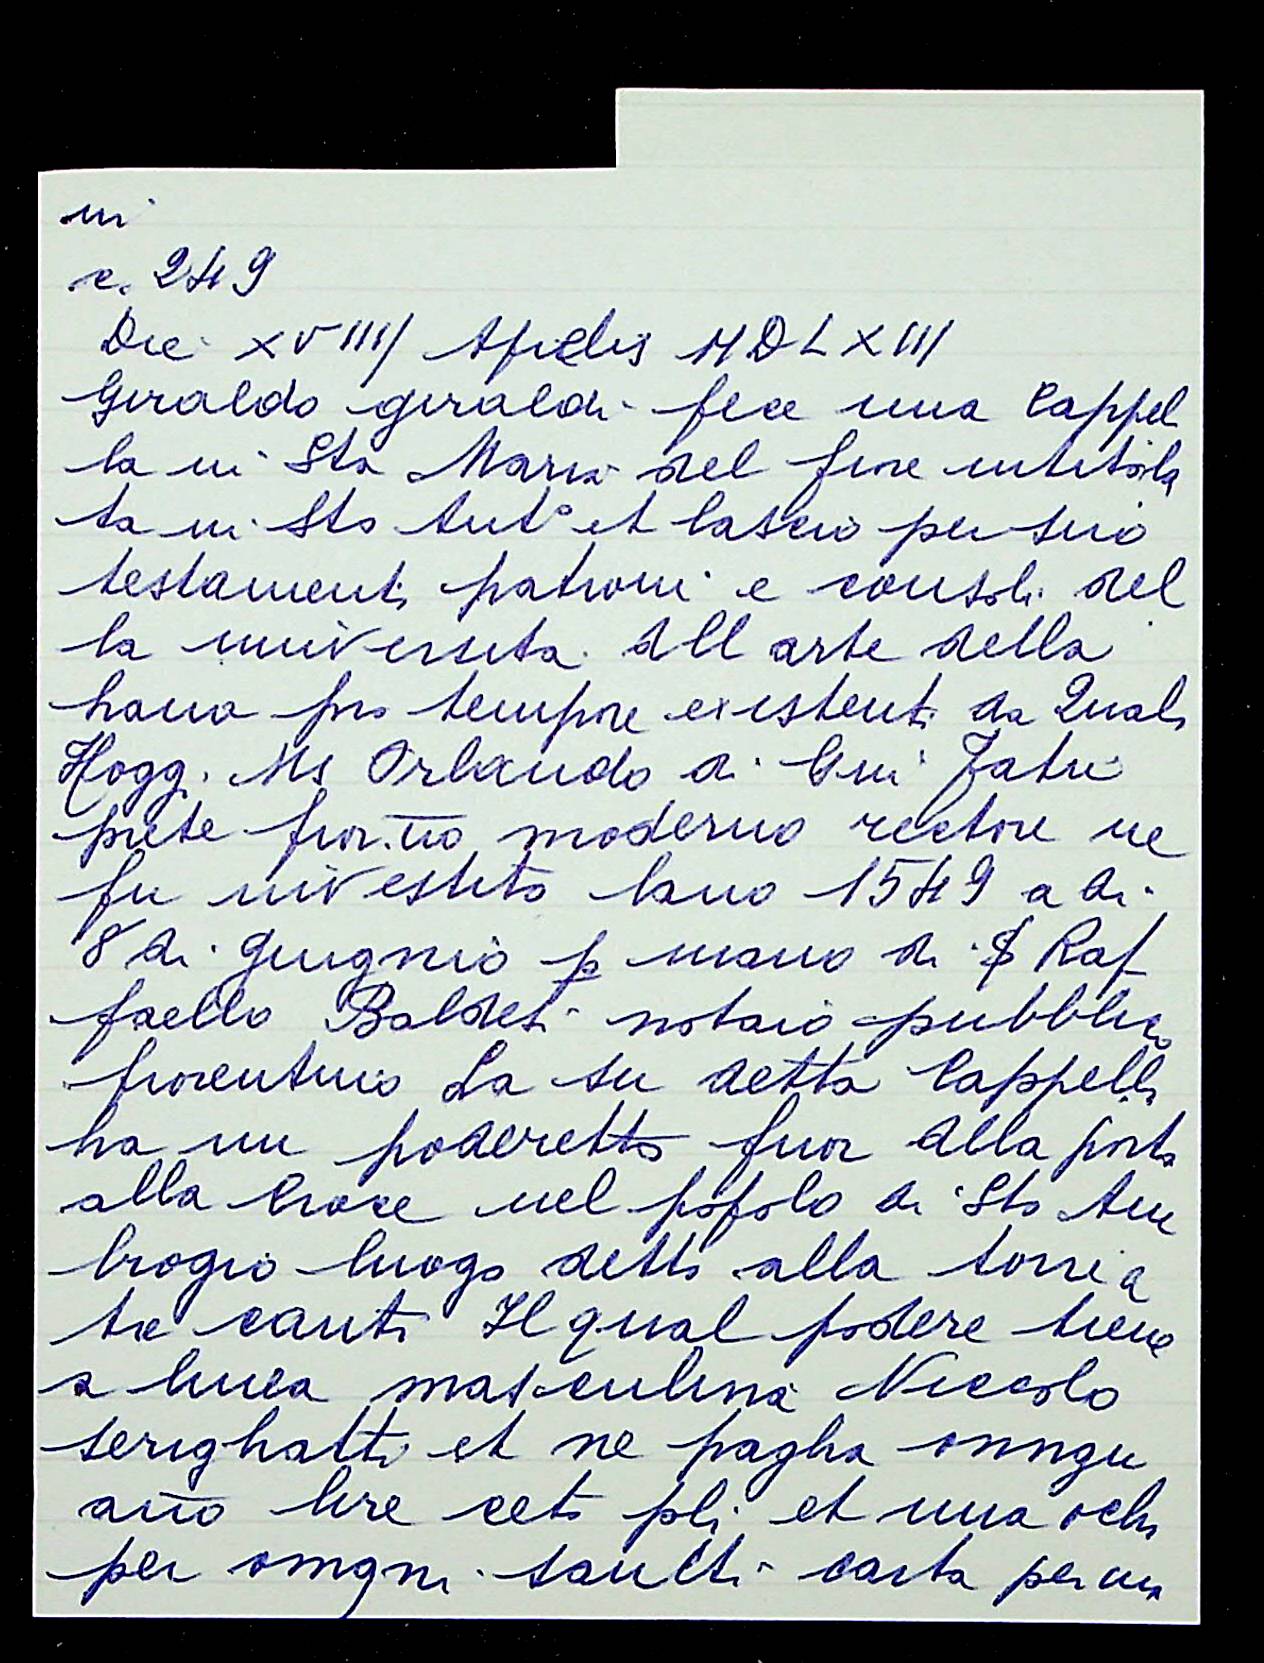 in
c. 249
Die XVIIII Aprelis MDLXIII
Giraldo giraldi fece una Cappel
la in Sta Maria del fiore intitola
ta in Sto Ant° et lascio per suo
testamento patroni e consoli del
la università dell arte della
lana pro tempore existenti da Quali
Hogg. Ms Orlando di Gui
prete fior.no moderno rectore ne
fu investito lano 1549 a di
8 di giugnio p mano di S Raf
faello Baldesi notaio pubblico
fiorentino La su detta Cappella
ha un poderetto fuor della porta
alla Croce nel popolo di Sto Am
brogio luogo detto alla torre a
tre canti Il qual podere tiene
a linea masculina Niccolo
serighatti et ne pagha onngni
anno lire ceto pli et una ocha
per omgni sancti carta per una